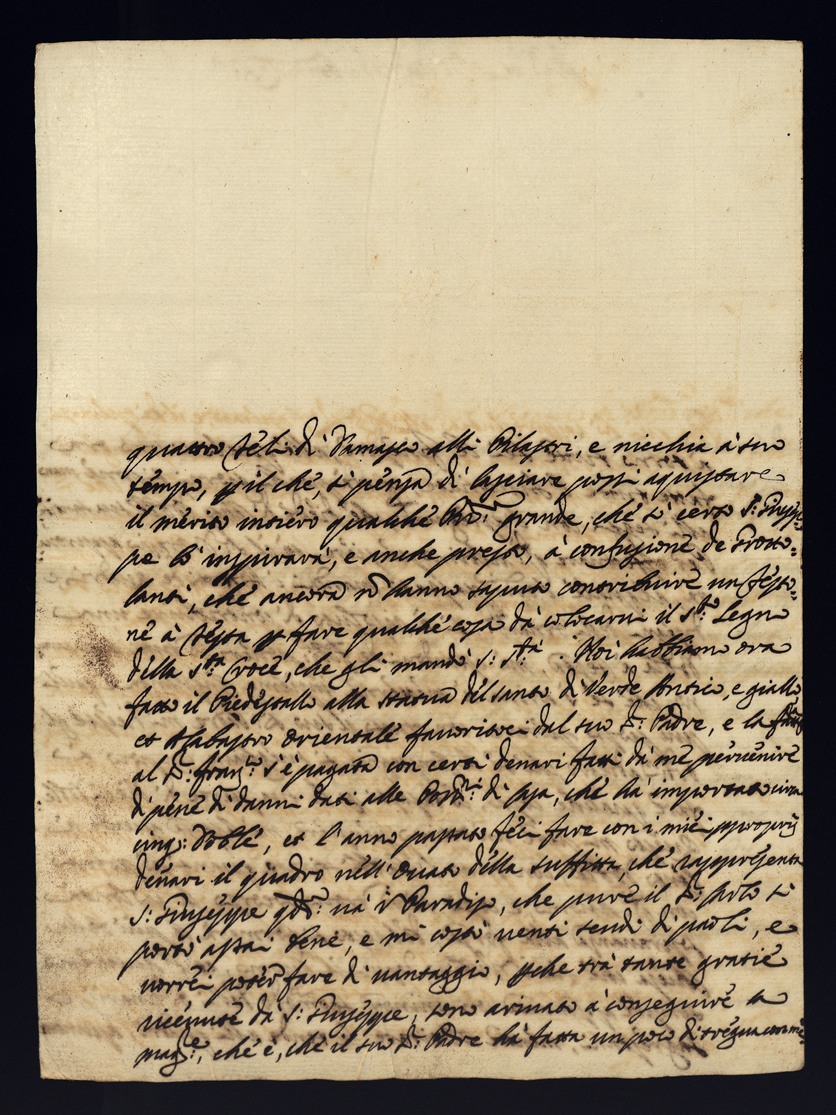 quattro teli di Damasco alli Pilastri, e nicchia à suo
tempo, p il che, si pensa di lasciare possi aquistare
il merito intiero qualche Pró: grande, che si certo S: Giusep=
pe lo inspirarà, e anche presto, à confusione de Protto=
lanti, che ancora nō hanno saputo contribuire un testo=
ne à testa p fare qualche cosa dà colocarvi il Sto: Legno
della Sta Croce, che gli mandò S: Stà. Noi habbiamo ora
fatto il Piedestallo alla statua del santo di Verde Antico, e giallo
et Alabastro orientale favoritoci dal suo Sr: Padre, e la
al Sr: Franco: s'è pagata con certi denari fatti dà me pervenire
di pene di danni dati alle di , che hà importato circa
cinq: Doble, et l'anno passato feci fare con i miei pproprij
denari il quadro nell'ovato della suffitta, che rappresenta
S: Giuseppe qdo: và in Paradiso, che pure il Sr: si
portò assai bene, e mi costò venti scudi di paoli, e
vorrei poter fare di vantaggio, pche trà tante gratie
ricevute da S: Giuseppe, sono arivato à conseguire la
magre, che è, che il suo Sr: Padre hà fatta un poco di tregua con me